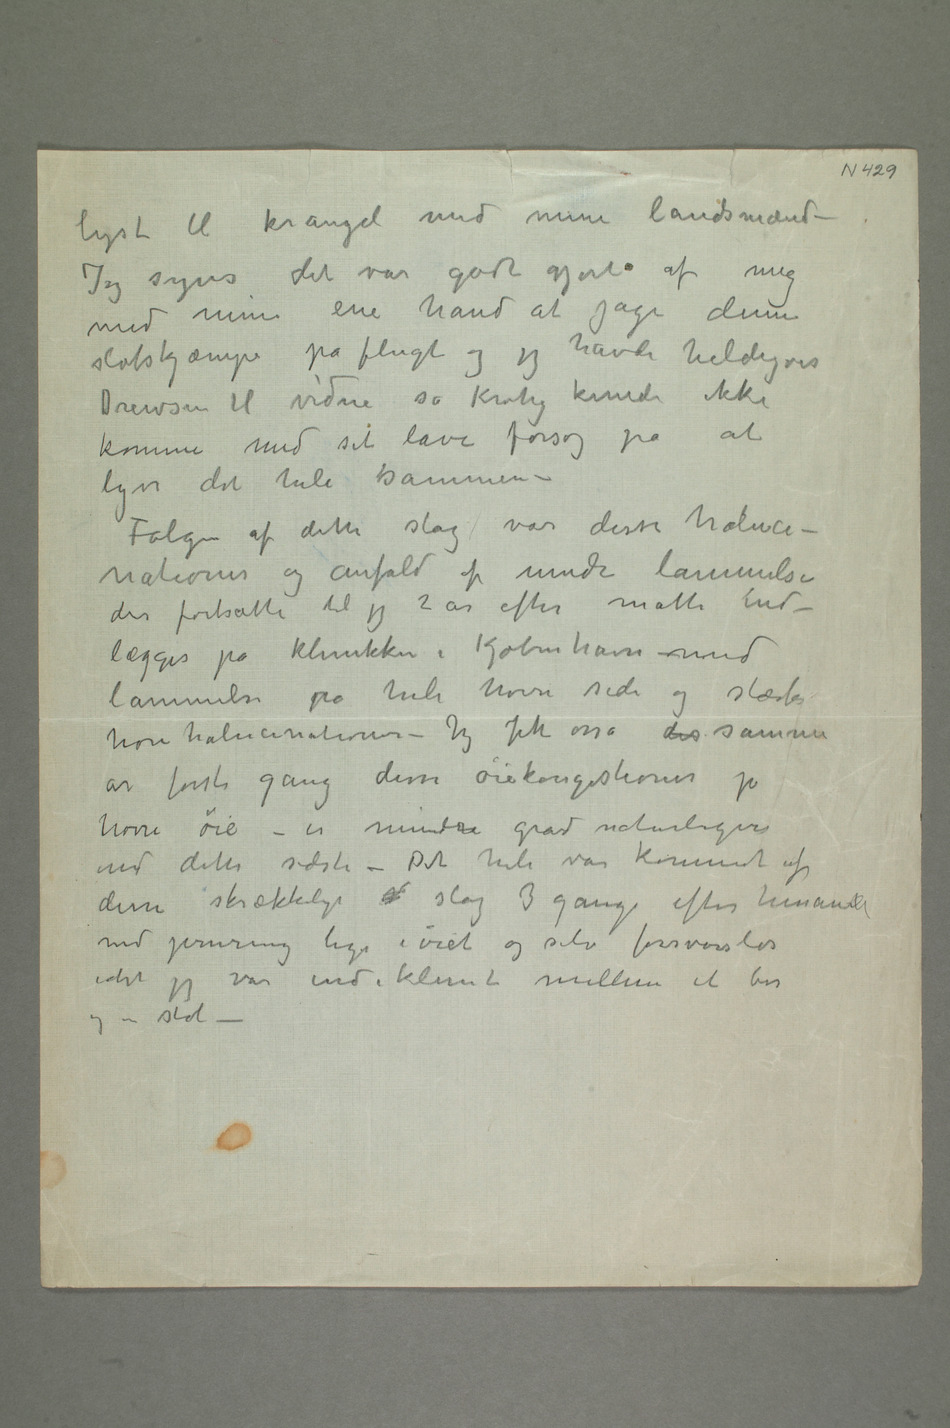 N 429
lyst til krangel med mine landsmænd –
Jeg synes det var godt gjort af mig
med min ene hand at jage denne
slotskjæmpe på flugt og jeg havde heldigvis
Drewsen til vidne så Krohg kunde ikke
komme med sit lave forsøg på at
lyve det hele sammen –
Følgen af dette slag var disse haluci-
nationer og anfald af mindre lammelse
der fortsatte til jeg 2 år efter måtte ind-
lægges på klinikken i Kjøbenhavn med
lammelse på hele høire side og stærke
hørehalucinationer – Jeg fik også des samme
år første gang disse øiekongestioner på
høire øie – i mindre grad naturligvis
end dette sidste – Det hele var kommet af
disse skrækkelige slag 3 gange efter hinanden
med lige i øiet og selv forsvarsløs
idet jeg var indeklemt mellem et bor
og en stol –